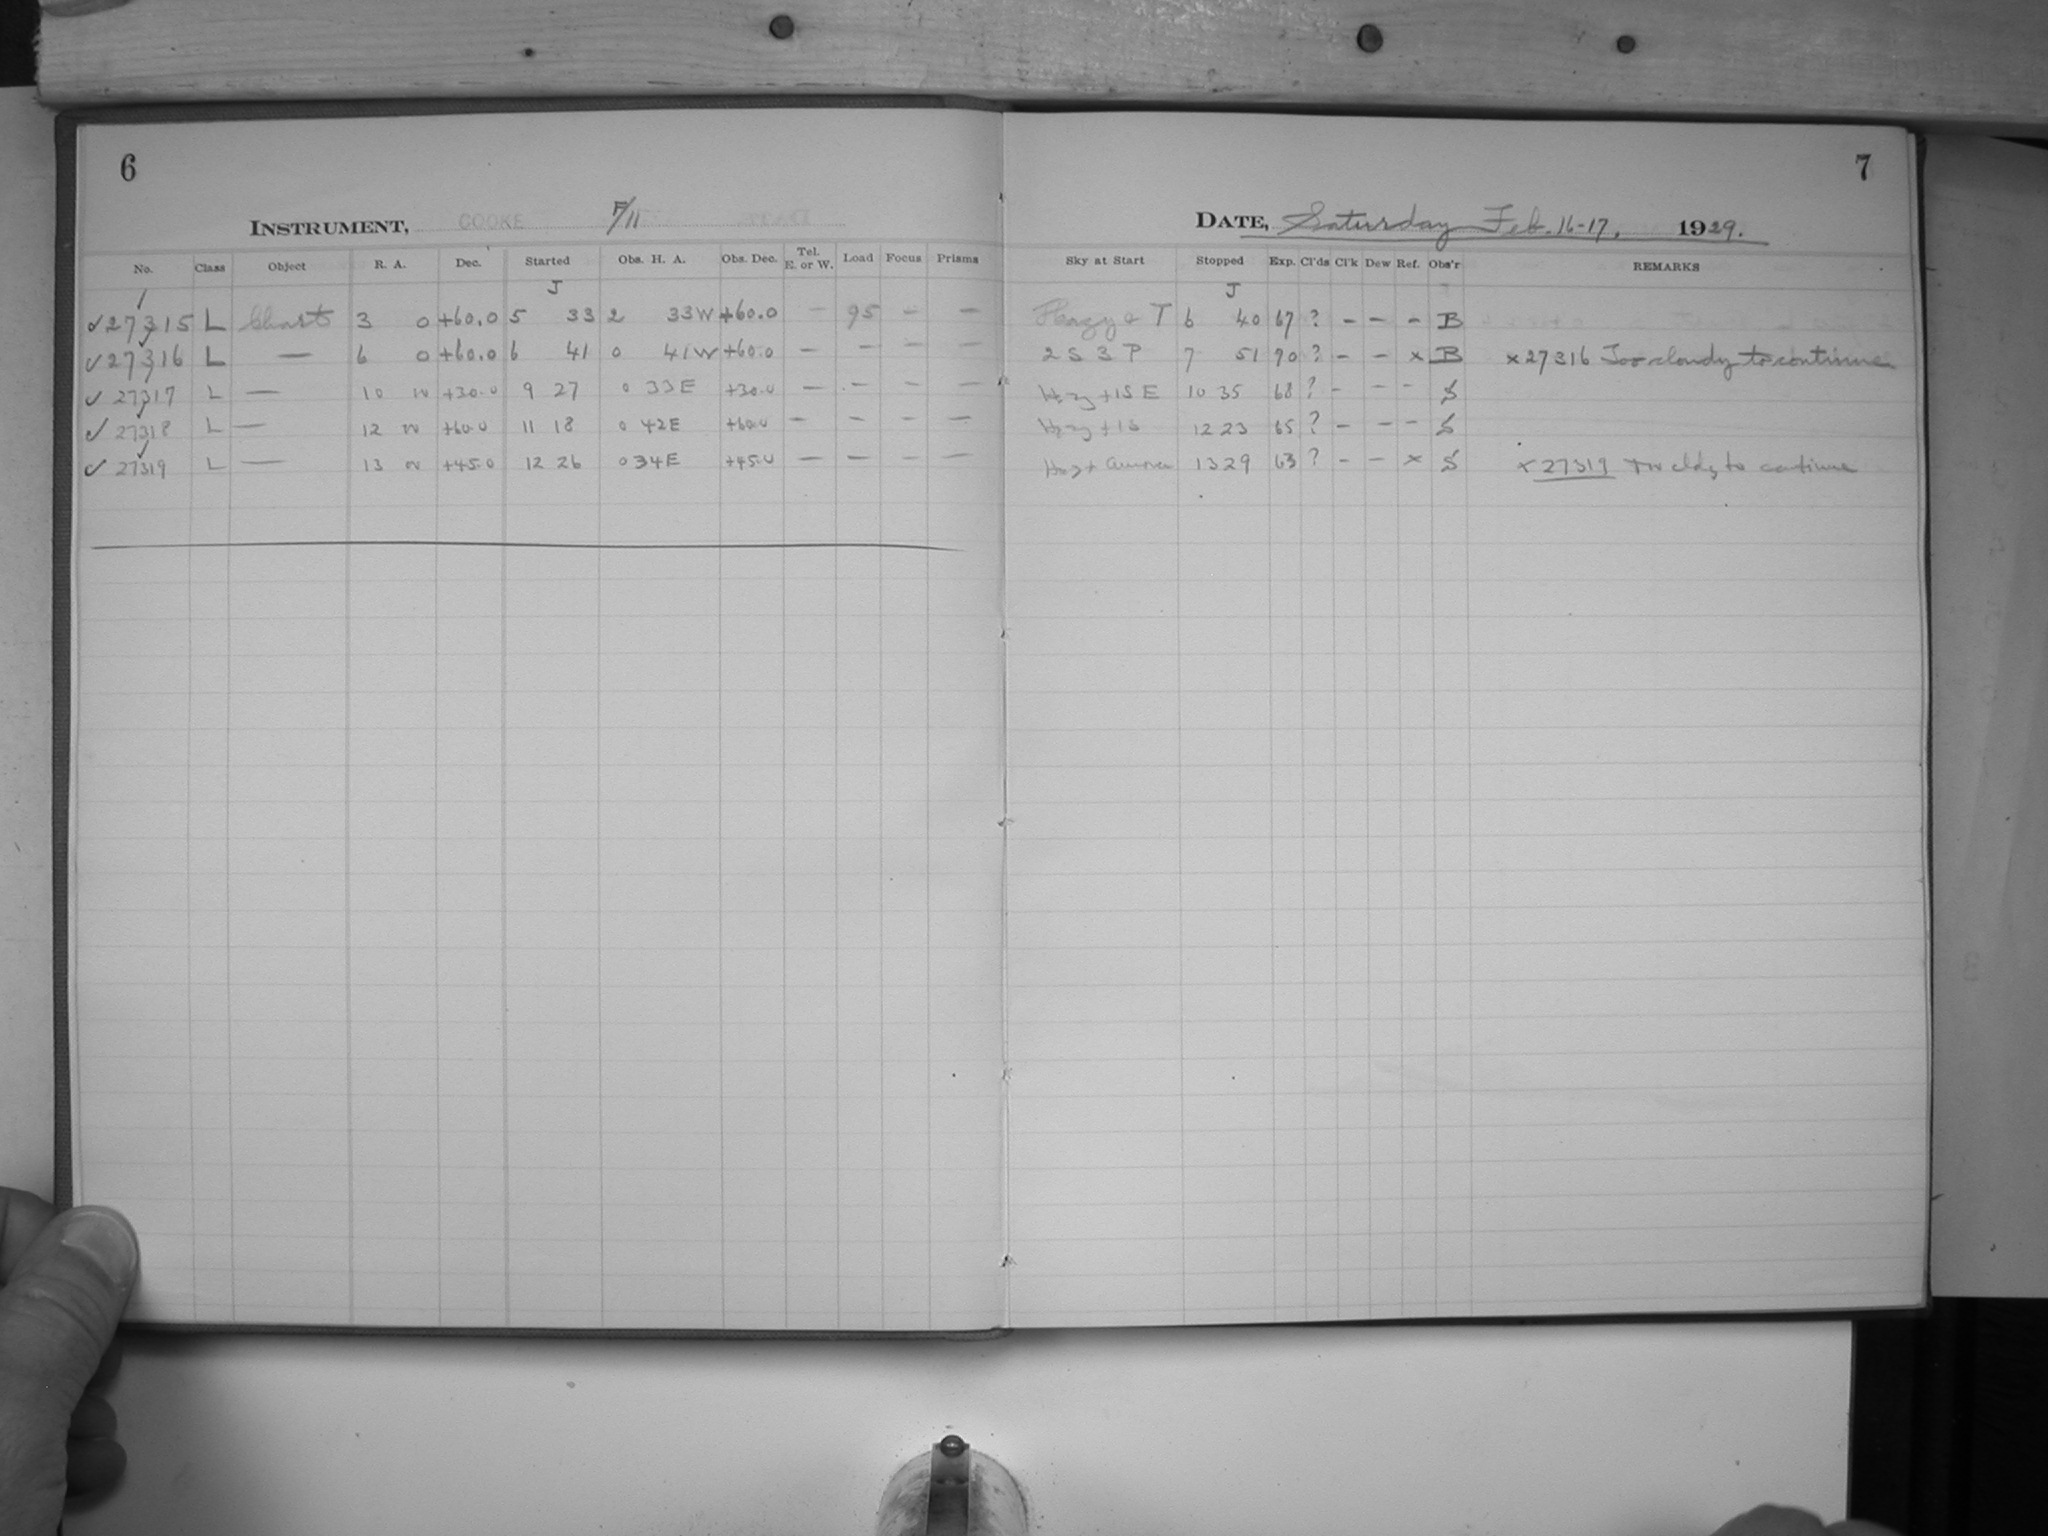 6
INSTRUMENT, COOKE F/11
No. Class Object R. A. Dec. Started Obs. H. A. Obs. Dec. Tel. E. or W. Load Focus Prisms
J
✓27315 L Chart 3 0 +60.0 5 33 2 33W +60.0 — 95 — —
✓27316 L — 6 0 +60.0 6 41 0 41W +60.0 — — — — —
✓27317 L — 10 0 +30.0 9 27 0 33E +30.0 — — — — —
✓27318 L — 12 0 +60.0 11 18 0 42E +60.0 — — — — —
✓27319 L — 13 0 +45.0 12 26 0 34E +45.0 — — — — —
7
DATE, Saturday Feb. 16-17, 1929.
Sky at Start Stopped Exp. Cl'ds Cl'k Dew Ref. Obs'r REMARKS
J
Hazy & T 6 40 67 ? – – – B
2 S 3 P 7 51 70 ? – – x B x27316 Too cloudy to continue
Hazy + 1S E 10 35 68 ? – – – S
Hazy + 1S 12 23 65 ? – – – S
Hazy + Aurora 13 29 63 ? – – x S x 27319 Too cldy to continue